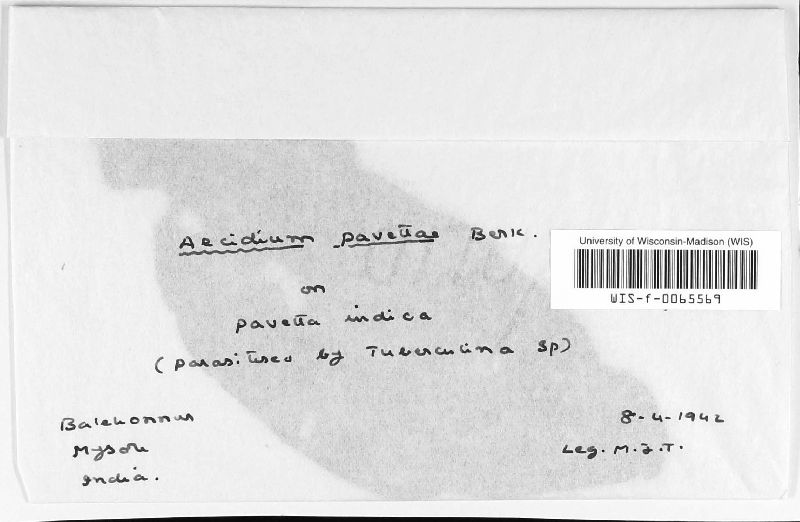 Aecidium pavettae Berk.
University of Wisconsin-Madison (WIS)
WIS-f-0065569
on
pavetta indica
(parasitised by Tuberculina sp)
Balehonnur
Mysore
India.
8-4-1942
Leg. M.J.T.